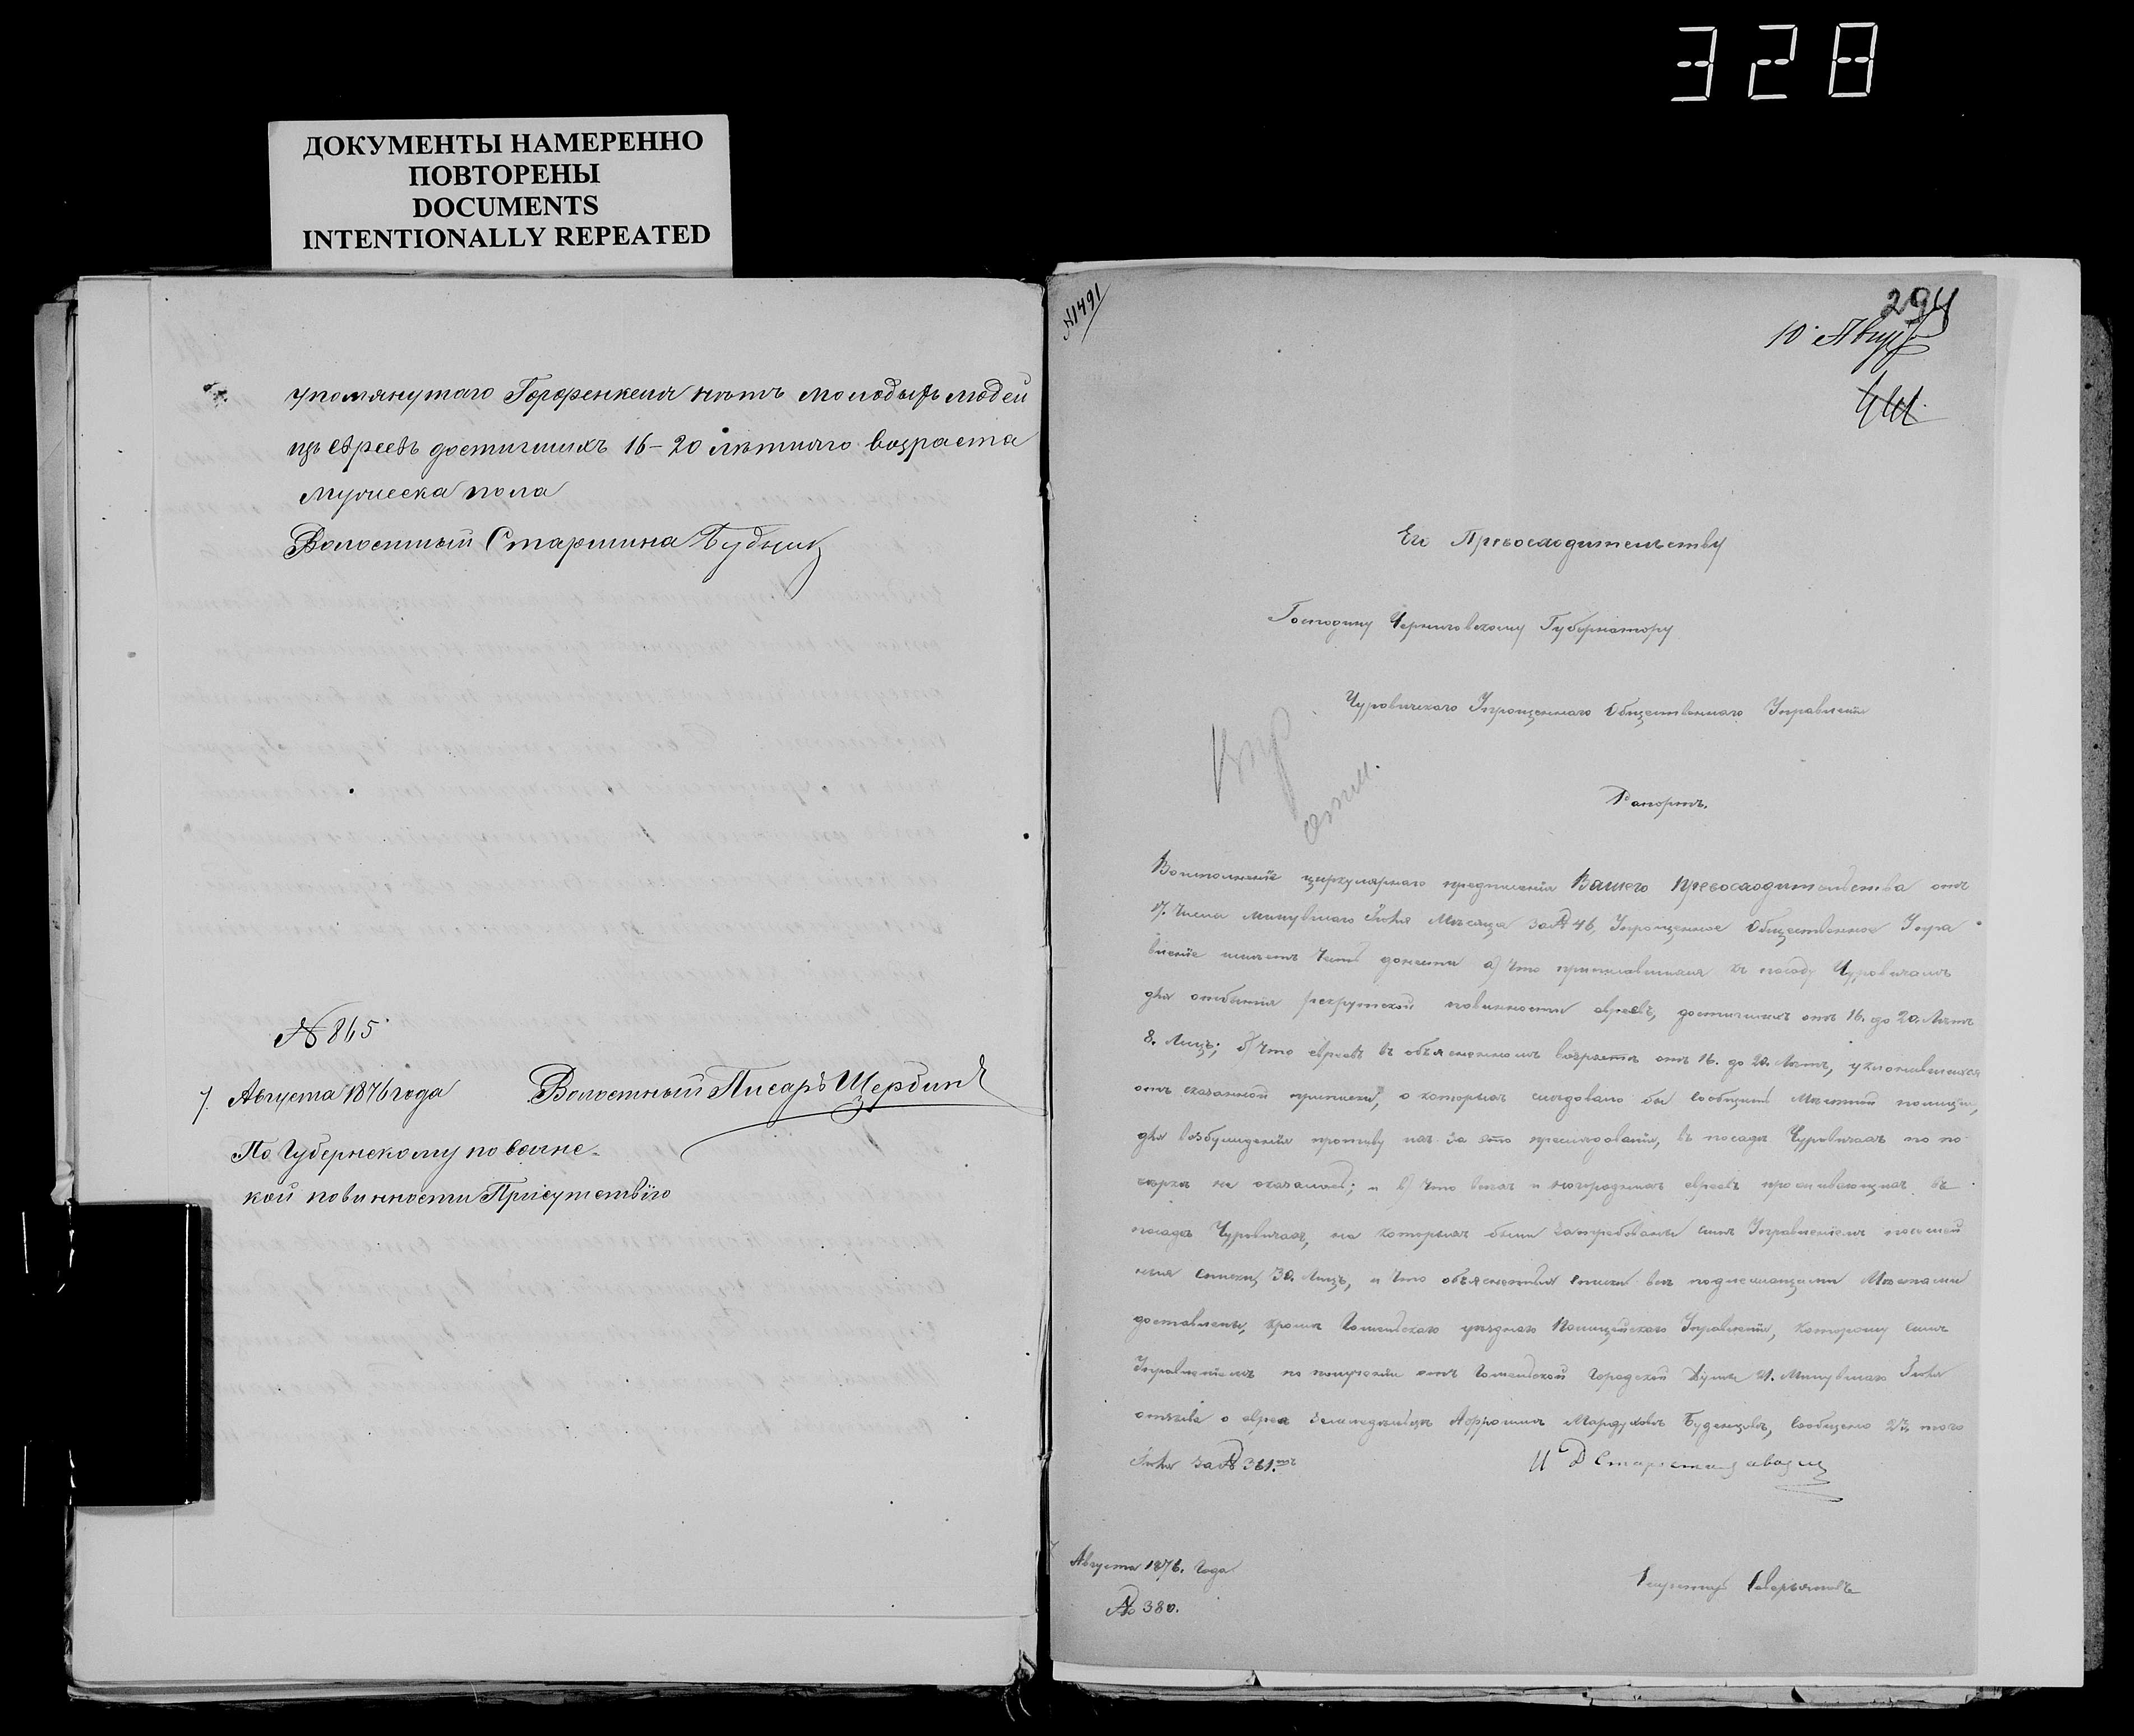 328
ДОКУМЕНТЫ НАМЕРЕННО
ПОВТОРЕНЫ
DOCUMENTS
INTENTIONALLY REPEATED
упомянутаго Горфенкеля нѣтъ молодыхъ людей
изъ евреевъ достигшихъ 16-20 лѣтняго возраста
мужеска пола
Волостный Старшина Будник
№ 865
7. Августа 1876 года Волостный Писарь Щербинъ
По Губернскому по воинс-
кой повинности Присутствію
№1491
294
10 Авгус
Его Превосходительству
Господину Черниговскому Губернатору
Чуровичского Упрощенного Общественного Управленія
Рапортъ.
Во исполненіе циркулярнаго предписанія Вашего Превосходительства отъ
числа минувшаго Іюля Мѣсяца за № 46, Упрощенное Общественное Упра
вленіе имѣетъ честь донести а) что приписавшихся къ посаду Чуровичамъ
для отбытія рекрутской повинности евреевъ, достигшихъ отъ 16. до 20. Лѣтъ
8. Лицъ; б) Что евреевъ въ объясненномъ возрастѣ отъ 16. до 20. Лѣтъ, уклонившихся
отъ сказанной приписки, о которыхъ слѣдовало бы сообщить Мѣстной полиціи,
для возбужденія противу нихъ за это преслѣдованія, въ посадѣ Чуровичахъ по по
вѣркѣ не оказалось; и в) Что всехъ иногородныхъ евреевъ проживающихъ въ
посадѣ Чуровичахъ, на которыхъ были затребованы симъ Управленіемъ посемей
ныя списки, 30. Лицъ, и что объясненныя списки все подлежащими Мѣстами
доставлены, кромѣ Гомельскаго уѣзднаго Полицейскаго Управленія, которому симъ
Управленіемъ по полученіи отъ Гомельской Городской Думы 21. Минувшаго Іюля
отзыва о евреѣ земледѣльцѣ Мордуховѣ сообщено 27. того
Іюля за № 361.мъ
И Д Старосты
Августа 1876. Года
№ 380.
Секретарь